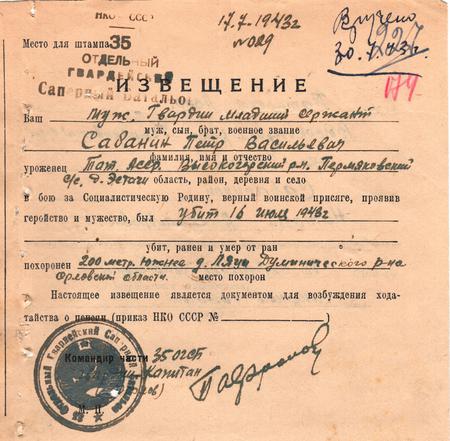 НКО СССР
17.7-1943г
№029
Вручено
30.7.43г.
Место для штампа
35
ОТДЕЛЬНЫЙ
ГВАРДЕЙСКИЙ
Саперный Батальон
179
ИЗВЕЩЕНИЕ
Ваш муж. Гвардии младший сержант
муж, сын, брат, военное звание
Сабанин Петр Васильевич
фамилия, имя и отчество
уроженец Тат. Асср. Высокогорский р-н. Пермяковский
с/с. д. Эстачи область, район, деревня и село
в бою за Социалистическую Родину, верный воинской присяге, проявив
геройство и мужество, был убит 16 июля 1943г
убит, ранен и умер от ран
похоронен 200 метр. южнее д. Думинического р-на
Орловской области. место похорон
Настоящее извещение является документом для возбуждения хода-
тайства о пенсии (приказ НКО СССР №
Командир части 35 огсб
Капитан
М. П.